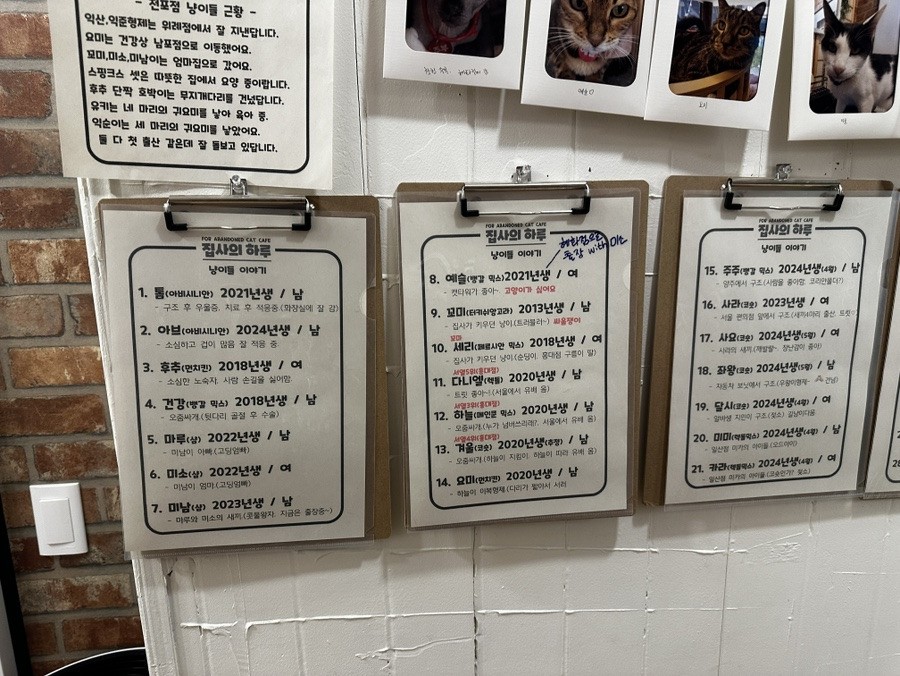 - 전포점 냥이들 근황 -
익산,익준형제는 위례점에서 잘 지낸답니다.
요미는 건강상 남포점으로 이동했어요.
꼬미,미소,미남이는 엄마집으로 갔어요.
스핑크스 셋은 따뜻한 집에서 요양 중이랍니다.
후추 단짝 호박이는 무지개다리를 건넜답니다.
유키는 네 마리의 귀요미를 낳아 육아 중.
익순이는 세 마리의 귀요미를 낳았어요.
둘 다 첫 출산 같은데 잘 돌보고 있답니다.
FOR ABANDONED CAT CAFE
집사의 하루
냥이들 이야기
1. 톰(아비시니안) 2021년생 / 남
- 구조 후 우울증. 치료 후 적응중.(화장실에 잘 감)
2. 아브(아비시니안) 2024년생 / 남
- 소심하고 겁이 많음 잘 적응 중.
3. 후추(먼치킨) 2018년생 / 여
- 소심한 노숙자. 사람 손길을 싫어함.
4. 건강(뱅갈 믹스) 2018년생 / 남
- 오줌싸개.(뒷다리 골절 후 수술)
5. 마루(샴) 2022년생 / 남
- 미남이 아빠(고딩엄빠)
6. 미소(샴) 2022년생 / 여
- 미남이 엄마.(고딩엄빠)
7. 미남(샴) 2023년생 / 남
- 마루와 미소의 새끼.(콧물왕자. 지금은 출장중~)
FOR ABANDONED CAT CAFE
집사의 하루
냥이들 이야기
with 미소
8. 예슬(뱅갈 믹스)2021년생 / 여
- 캣타워가 좋아~. 고양이가 싫어요
9. 꼬미(터키쉬앙고라) 2013년생 / 남
- 집사가 키우던 냥이.(트러블러~) 싸움쟁이
꼬마
10. 세리(페르시안 믹스) 2018년생 / 여
- 집사가 키우던 냥이.(순딩이. 홍대점 구름이 딸)
서열5위(홍대점)
11. 다니엘(랙돌) 2020년생 / 남
- 트릿 좋아~!.(서울에서 유배 옴)
서열3위(홍대점)
12. 하늘(메인쿤 믹스) 2020년생 / 남
- 오줌싸개.(누가 넘버쓰리래?. 서울에서 유배 옴)
서열4위(홍대점)
13. 겨울(코숏) 2020년생(추정) / 남
- 오줌싸개.(하늘이 지킴이. 하늘이 따라 유배 옴)
14. 요미(먼치킨) 2020년생 / 남
- 하늘이 이복형제.(다리가 짧아서 서러
FOR ABANDONED CAT CAFE
집사의 하루
냥이들 이야기
15. 주주(뱅갈 믹스) 2024년생(4월) / 남
- 양주에서 구조.(사람을 좋아함. 코리안쫄대?)
16. 사라(코숏) 2023년생 / 여
- 서울 편의점 앞에서 구조.(새끼4마리 출산. 트릿
17. 사요(코숏) 2024년생(5월) / 남
- 사라의 새끼.(제발랄~. 장난감이 좋아)
18. 좌왕(코숏) 2024년생(5월) / 남
- 자동차 보닛에서 구조.(우왕이형제- 건넘)
19. 달시(코숏) 2024년생(4월) / 여
- 알바생 지민이 구조.(젖소) 길냥이다움
20. 미미(랙돌믹스) 2024년생(4월) / 남
- 일산점 미카의 아이들.(오드아이)
21. 카라(랙돌믹스) 2024년생(4월) / 여
- 일산점 미카의 아이들.(코숏인가?. 젖소)
예슬♡